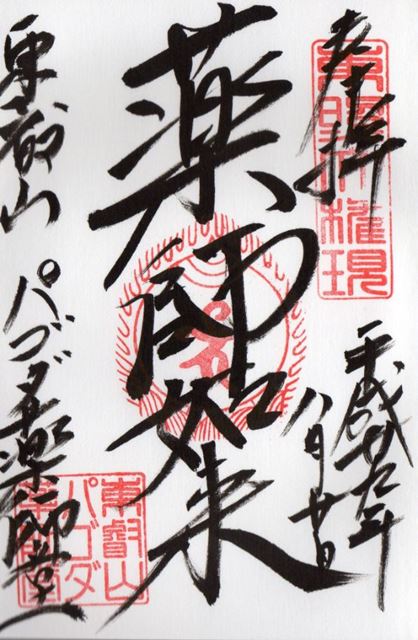 奉拝
東照大権現
平成廿九年
八月廿日
薬師如来
東叡山 パゴダ薬師堂
東叡山
パゴダ
薬師堂